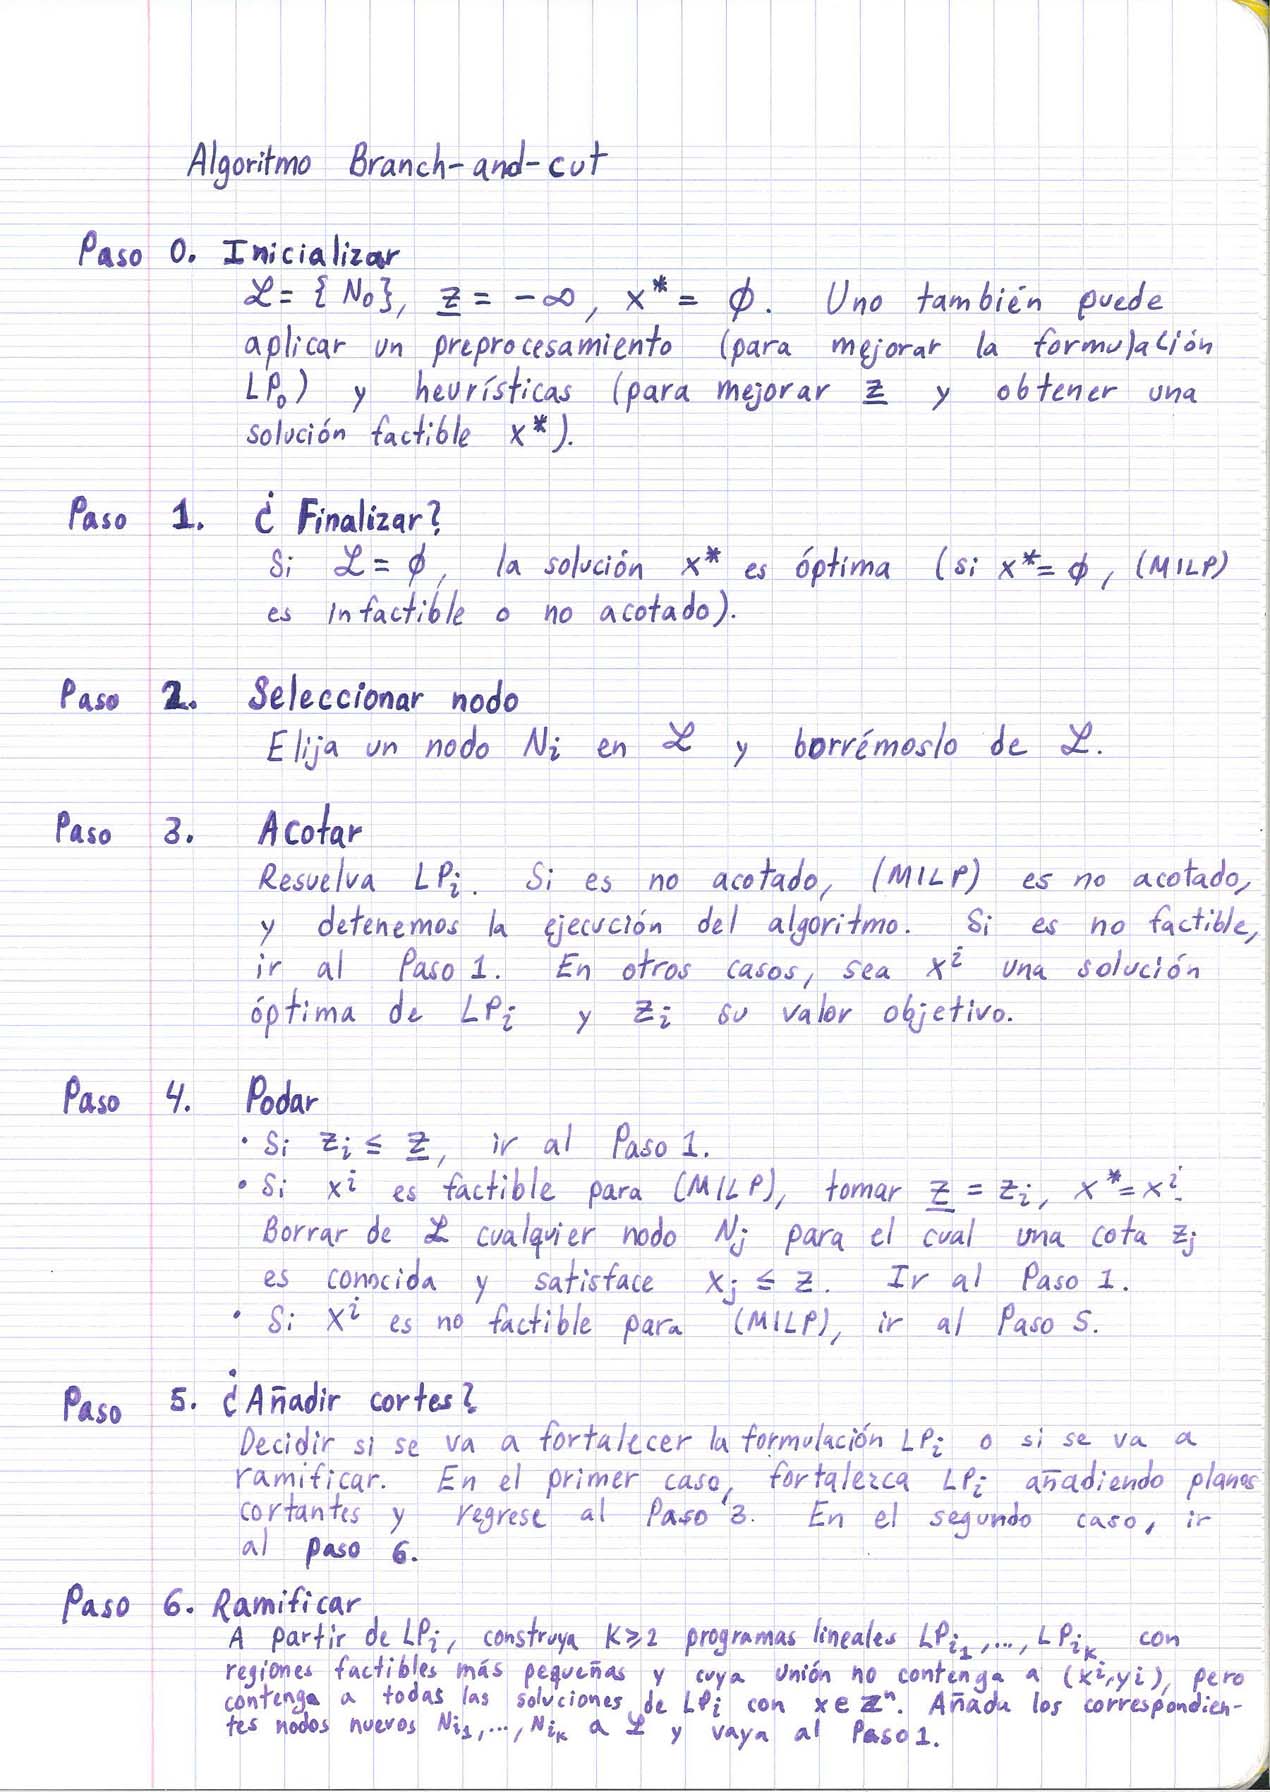 Algoritmo Branch-and-cut
Paso 0. Inicializar
ℒ = {N₀}, z̲ = -∞, x* = ∅. Uno también puede
aplicar un preprocesamiento (para mejorar la formulación
LP₀) y heurísticas (para mejorar z̲ y obtener una
solución factible x*).
Paso 1. ¿Finalizar?
Si ℒ = ∅, la solución x* es óptima (si x* = ∅, (MILP)
es infactible o no acotado).
Paso 2. Seleccionar nodo
Elija un nodo Nᵢ en ℒ y borrémoslo de ℒ.
Paso 3. Acotar
Resuelva LPᵢ. Si es no acotado, (MILP) es no acotado,
y detenemos la ejecución del algoritmo. Si es no factible,
ir al Paso 1. En otros casos, sea xⁱ una solución
óptima de LPᵢ y zᵢ su valor objetivo.
Paso 4. Podar
• Si zᵢ ≤ z̲, ir al Paso 1.
• Si xⁱ es factible para (MILP), tomar z̲ = zᵢ, x* = xⁱ.
Borrar de ℒ cualquier nodo Nⱼ para el cual una cota zⱼ
es conocida y satisface xⱼ ≤ z. Ir al Paso 1.
• Si xⁱ es no factible para (MILP), ir al Paso 5.
Paso 5. ¿Añadir cortes?
Decidir si se va a fortalecer la formulación LPᵢ o si se va a
ramificar. En el primer caso, fortalezca LPᵢ añadiendo planos
cortantes y regrese al Paso 3. En el segundo caso, ir
al Paso 6.
Paso 6. Ramificar
A partir de LPᵢ, construya K ≥ 2 programas lineales LPᵢ₁, ..., LPᵢₖ con
regiones factibles más pequeñas y cuya unión no contenga a (xⁱ, yⁱ), pero
contenga a todas las soluciones de LPᵢ con x ∈ ℤⁿ. Añada los correspondien-
tes nodos nuevos Nᵢ₁, ..., Nᵢₖ a ℒ y vaya al Paso 1.